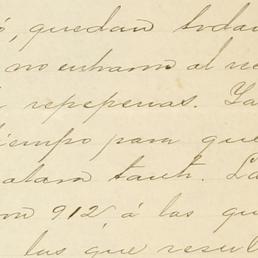 ó, quedan todav
no entraron al re
repepenas. Ya
iempo para que
alara tanto. La
912 á las qu
las que resul